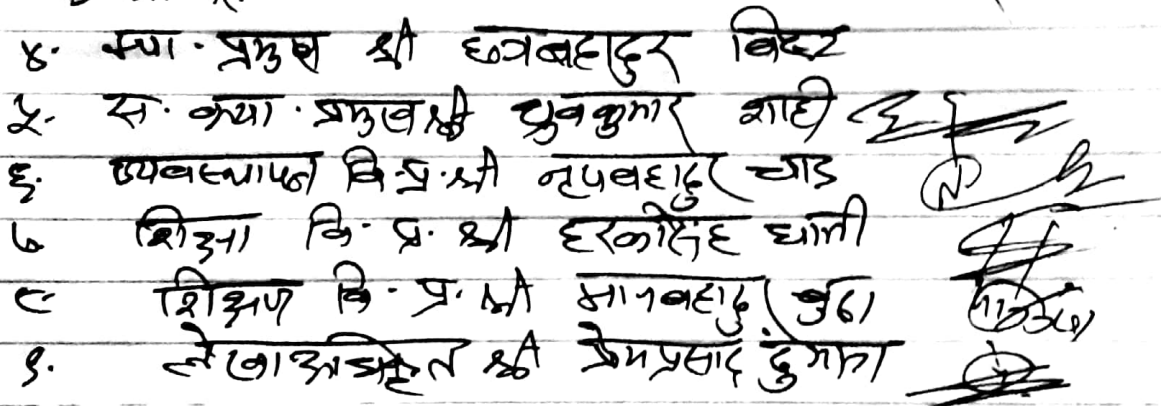 ४. क्या. प्रमुख श्री छत्रबहादुर बिष्ट
५. स. क्या. प्रमुख श्री ध्रुवकुमार शाही
६. व्यवस्थापन वि. प्र. श्री नृपबहादुर चाड
७ शिक्षा वि. प्र. श्री हरकसिंह धामी
८ शिक्षण वि. प्र. श्री मानबहादुर बुढा
९. लेखा अधिकृत श्री प्रेमप्रसाद